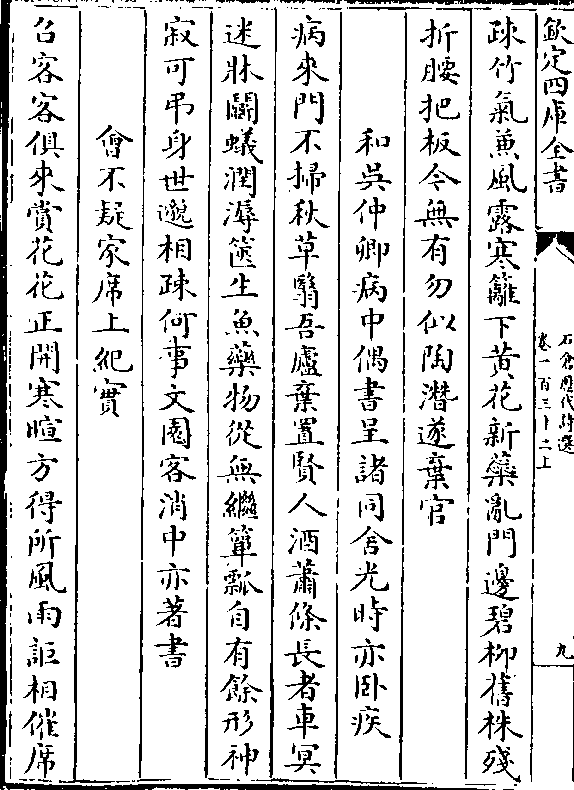 欽定四庫全書
石倉歷代詩選
卷一百三十二上
九
疎竹氣兼風露寒籬下黄花新藥亂門邊碧柳舊株殘
折腰把板今無有勿似陶潛遂棄官
和吳仲卿病中偶書呈諸同舍光時亦卧疾
病來門不掃秋草翳吾廬棄置賢人酒蕭條長者車冥
迷牀鬭蟻潤溽篋生魚藥物從無繼簞瓢自有餘形神
寂可弔身世邈相疎何事文園客消中亦著書
會不疑家席上紀實
召客客俱來賞花花正開寒暄方得所風雨詎相催席